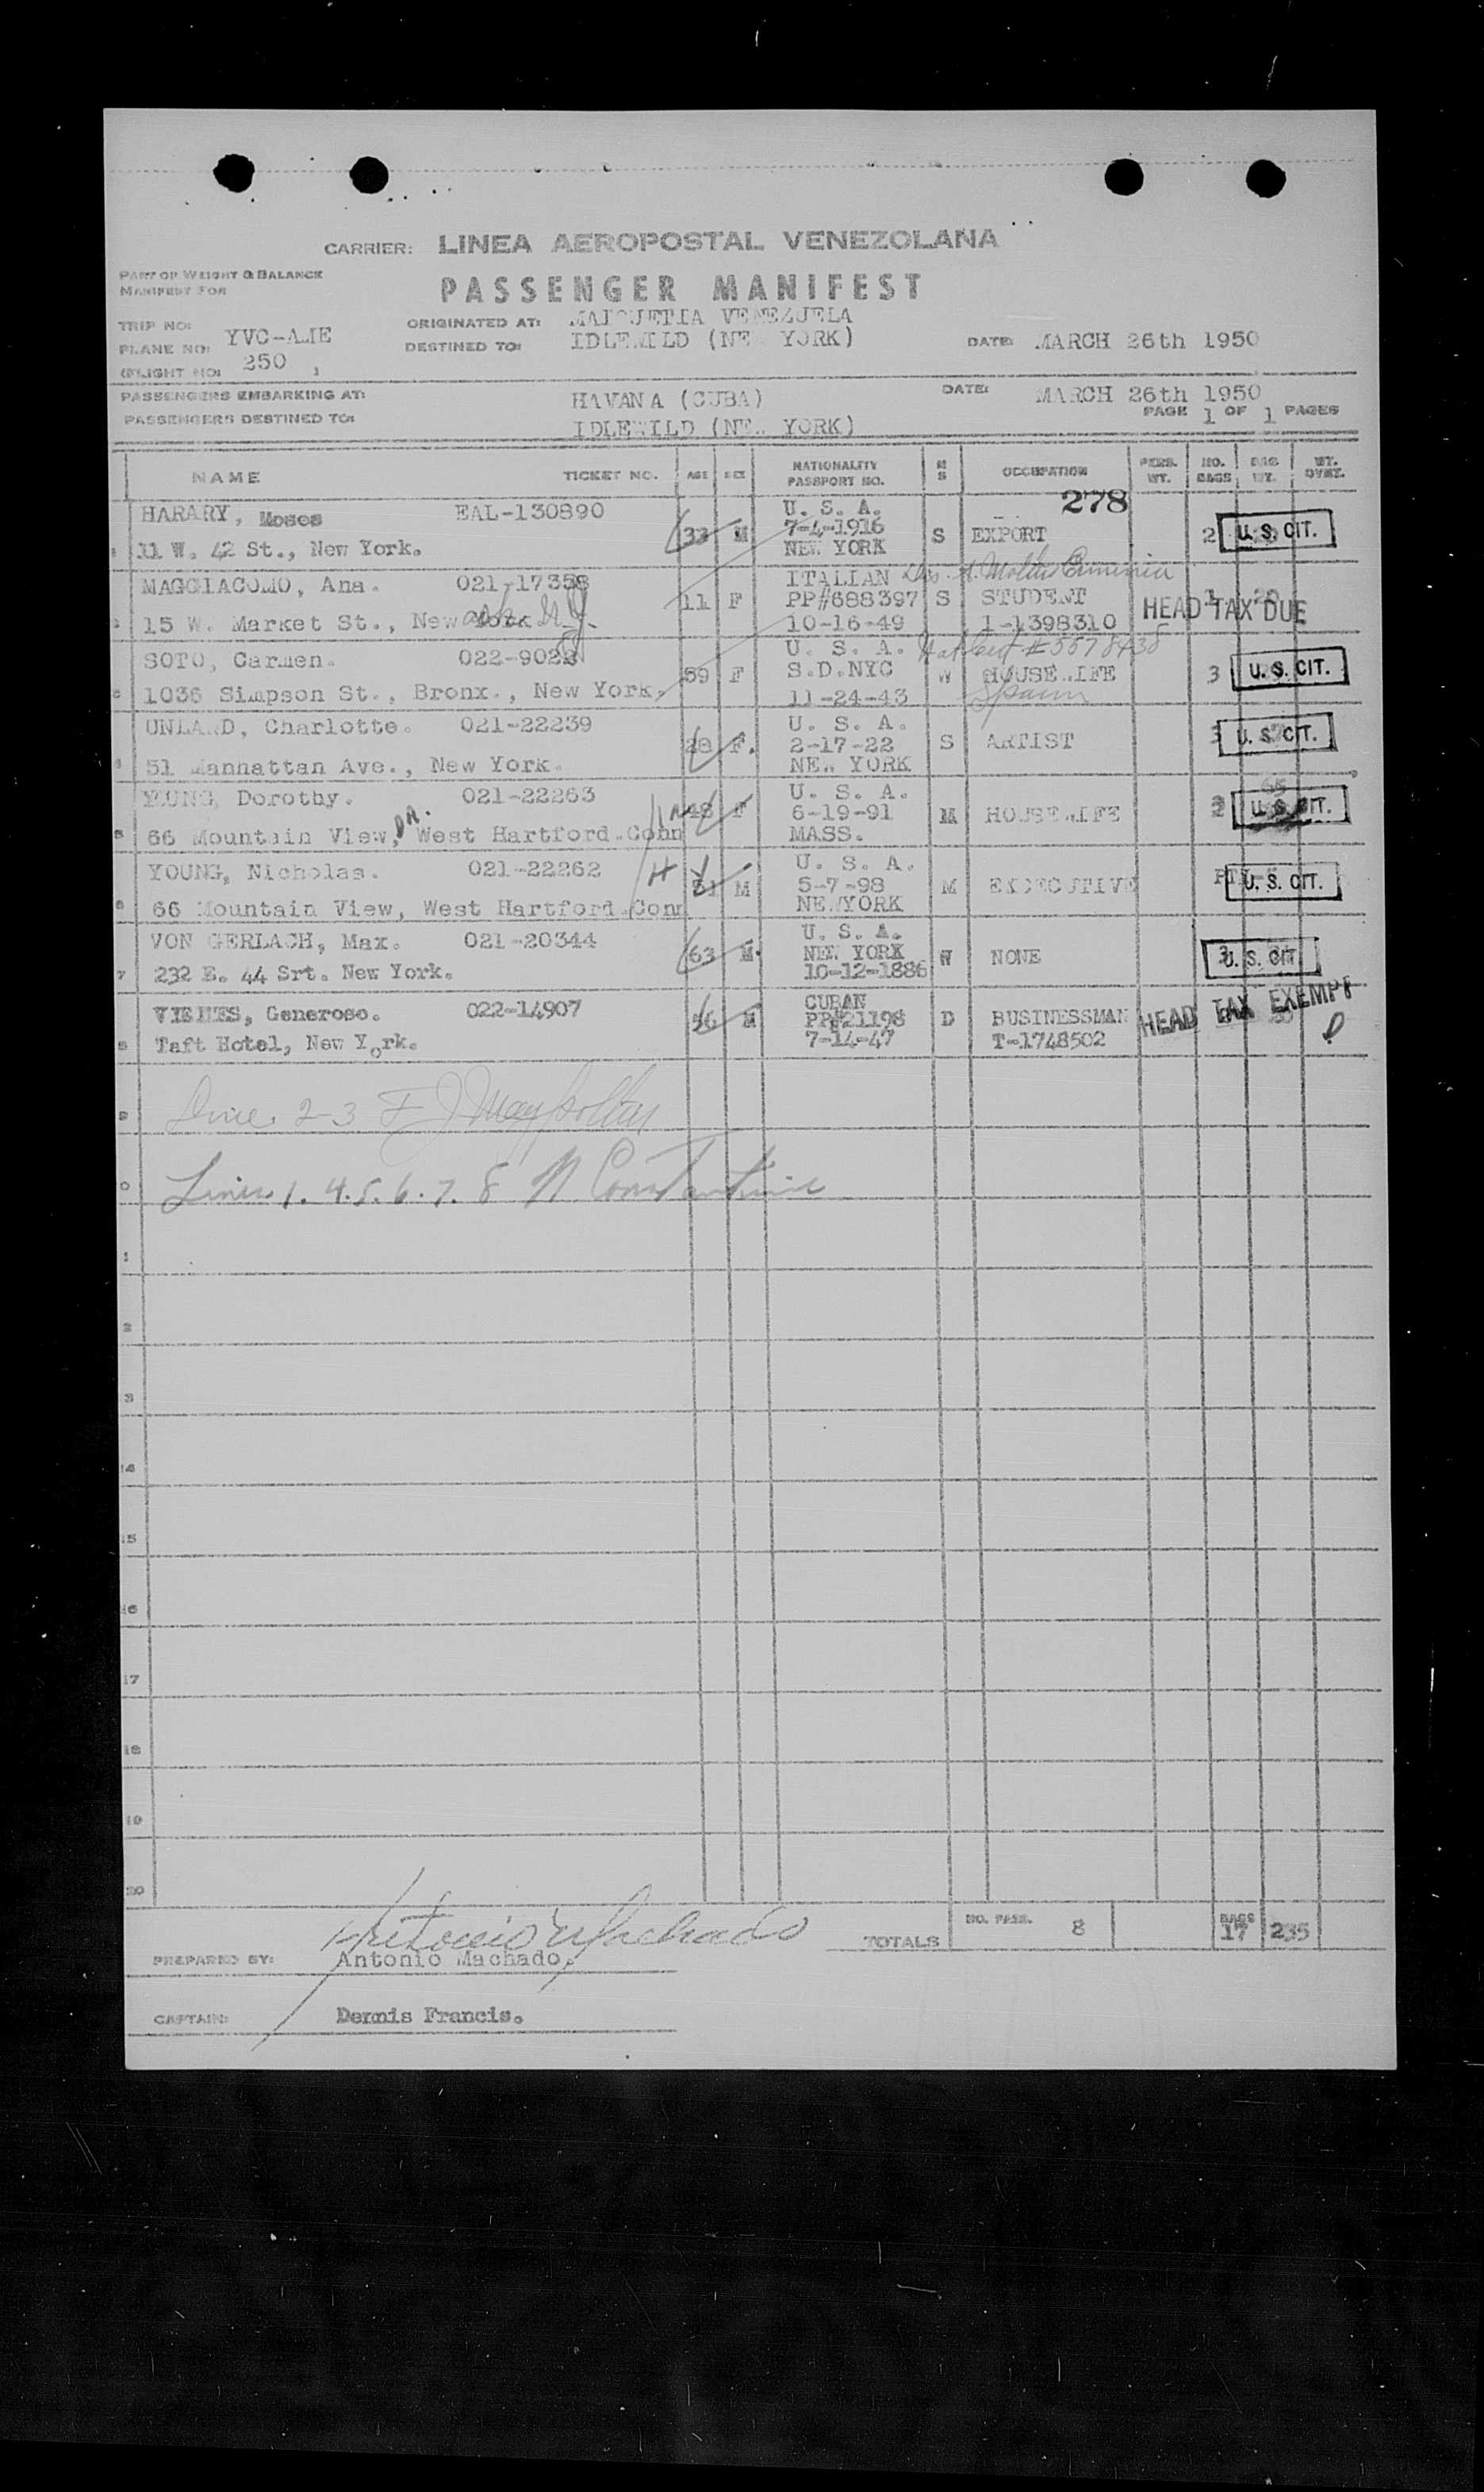 CARRIER: LINEA AEROPOSTAL VENEZOLANA
PART OF WEIGHT & BALANCE
MANIFEST FOR
PASSENGER MANIFEST
TRIP NO:
PLANE NO: YVC-AME
FLIGHT NO: 250
ORIGINATED AT: MAIQUETIA VENEZUELA
DESTINED TO: IDLEWILD (NEW YORK)
DATE: MARCH 26th 1950
PASSENGERS EMBARKING AT: HAVANA (CUBA)
DATE: MARCH 26th 1950
PAGE 1 OF 1 PAGES
PASSENGERS DESTINED TO: IDLEWILD (NEW YORK)
NAME TICKET NO. AGE SEX NATIONALITY PASSPORT NO. M S OCCUPATION PERS. WT. NO. BAGS BAG WT. WT. OVWT.
278
HARARY, Moses EAL-130890 U. S. A.
33 M 7-4-1916 S EXPORT 2 U. S. CIT.
1 11 W. 42 St., New York. NEW YORK
MAGGIACOMO, Ana. 021-17358 ITALIAN
11 F PP#688397 S STUDENT 1 20 HEAD TAX DUE
2 15 W. Market St., New York 10-16-49 I-1398310
SOTO, Carmen. 022-9028 U. S. A. Nat Cert # 5578438
59 F S.D.NYC W HOUSEWIFE 3 U. S. CIT.
3 1036 Simpson St., Bronx., New York. 11-24-43 Spain
UNLAND, Charlotte. 021-22239 U. S. A.
28 F. 2-17-22 S ARTIST 3 U. S. CIT.
4 51 Manhattan Ave., New York. NEW YORK
YOUNG, Dorothy. 021-22263 U. S. A. 65
48 F 6-19-91 M HOUSEWIFE 2 U. S. CIT.
5 66 Mountain View, DR. West Hartford.Conn MASS.
YOUNG, Nicholas. 021-22262 U. S. A.
H 51 M 5-7-98 M EXCECUTIVE U. S. CIT.
6 66 Mountain View, West Hartford.Conn NEWYORK
VON GERLACH, Max. 021-20344 U. S. A.
63 M. NEW YORK W NONE U. S. CIT.
7 232 E. 44 Srt. New York. 10-12-1886
VIEITES, Generoso. 022-14907 CUBAN
56 M PP#21198 D BUSINESSMAN HEAD TAX EXEMPT
8 Taft Hotel, New York. 7-14-47 T-1748502
9 Line 2-3
0 Lines 1. 4. 5. 6. 7. 8 N Constantine
1
2
3
14
15
16
17
18
19
20
TOTALS NO. PASS. 8 BAGS 17 235
Antonio Machado
PREPARED BY: Antonio Machado.
CAPTAIN: Dennis Francis.